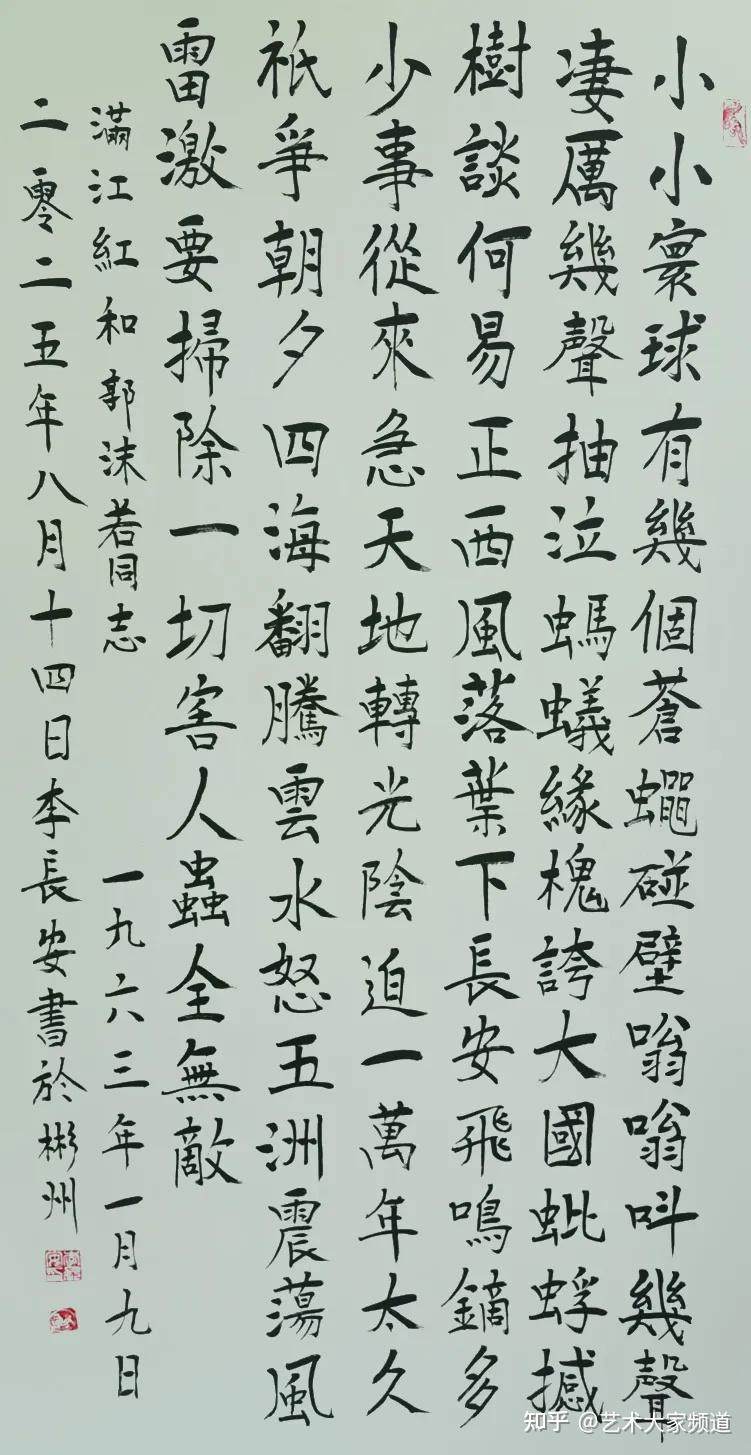 小小寰球有幾個蒼蠅碰壁嗡嗡呌幾聲
凄厲幾聲抽泣螞蟻緣槐誇大國蚍蜉撼
樹談何易正西風落葉下長安飛鳴鏑多
少事從來急天地轉光陰迫一萬年太久
祇爭朝夕四海翻騰雲水怒五洲震蕩風
雷激要掃除一切害人蟲全無敵
滿江紅和郭沫若同志 一九六三年一月九日
二零二五年八月十四日李長安書於彬州
知乎 @艺术大家频道